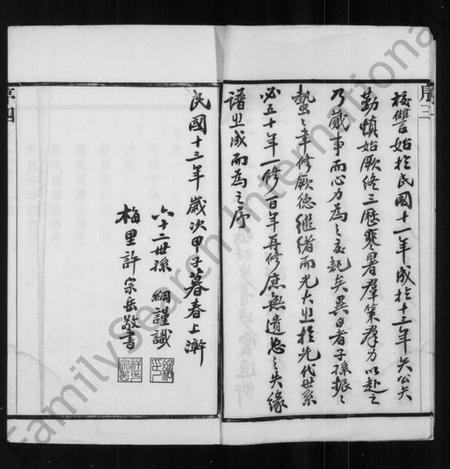 序三
校讐始於民國十一年成於十三年矢公矢
勤慎始厥終三歷寒暑羣策羣力以赴之
乃歲事而心力為之交耗矣異日者子孫振〻
蟄〻聿修厥德繼緒而光大之於先代世系
必五十年一修百年再修庶無遺忘之失緣
譜之成而為之序
民國十三年歲次甲子暮春上澣
六十二世孫 綱謹識
梅里許宗岳敬書
序四
FamilySearch International